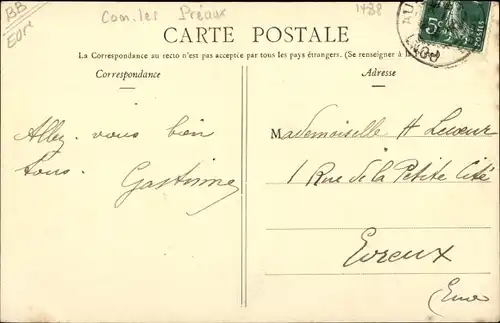 BB
Eure
Com. les Préaux
1488
CARTE POSTALE
La Correspondance au recto n'est pas acceptée par tous les pays étrangers. (Se renseigner à la
Correspondance
Adresse
5c
POSTES
Allez-vous bien
tous.
Gastinne
Mademoiselle H Lecœur
1 Rue de la Petite Cité
Evreux
(Eure